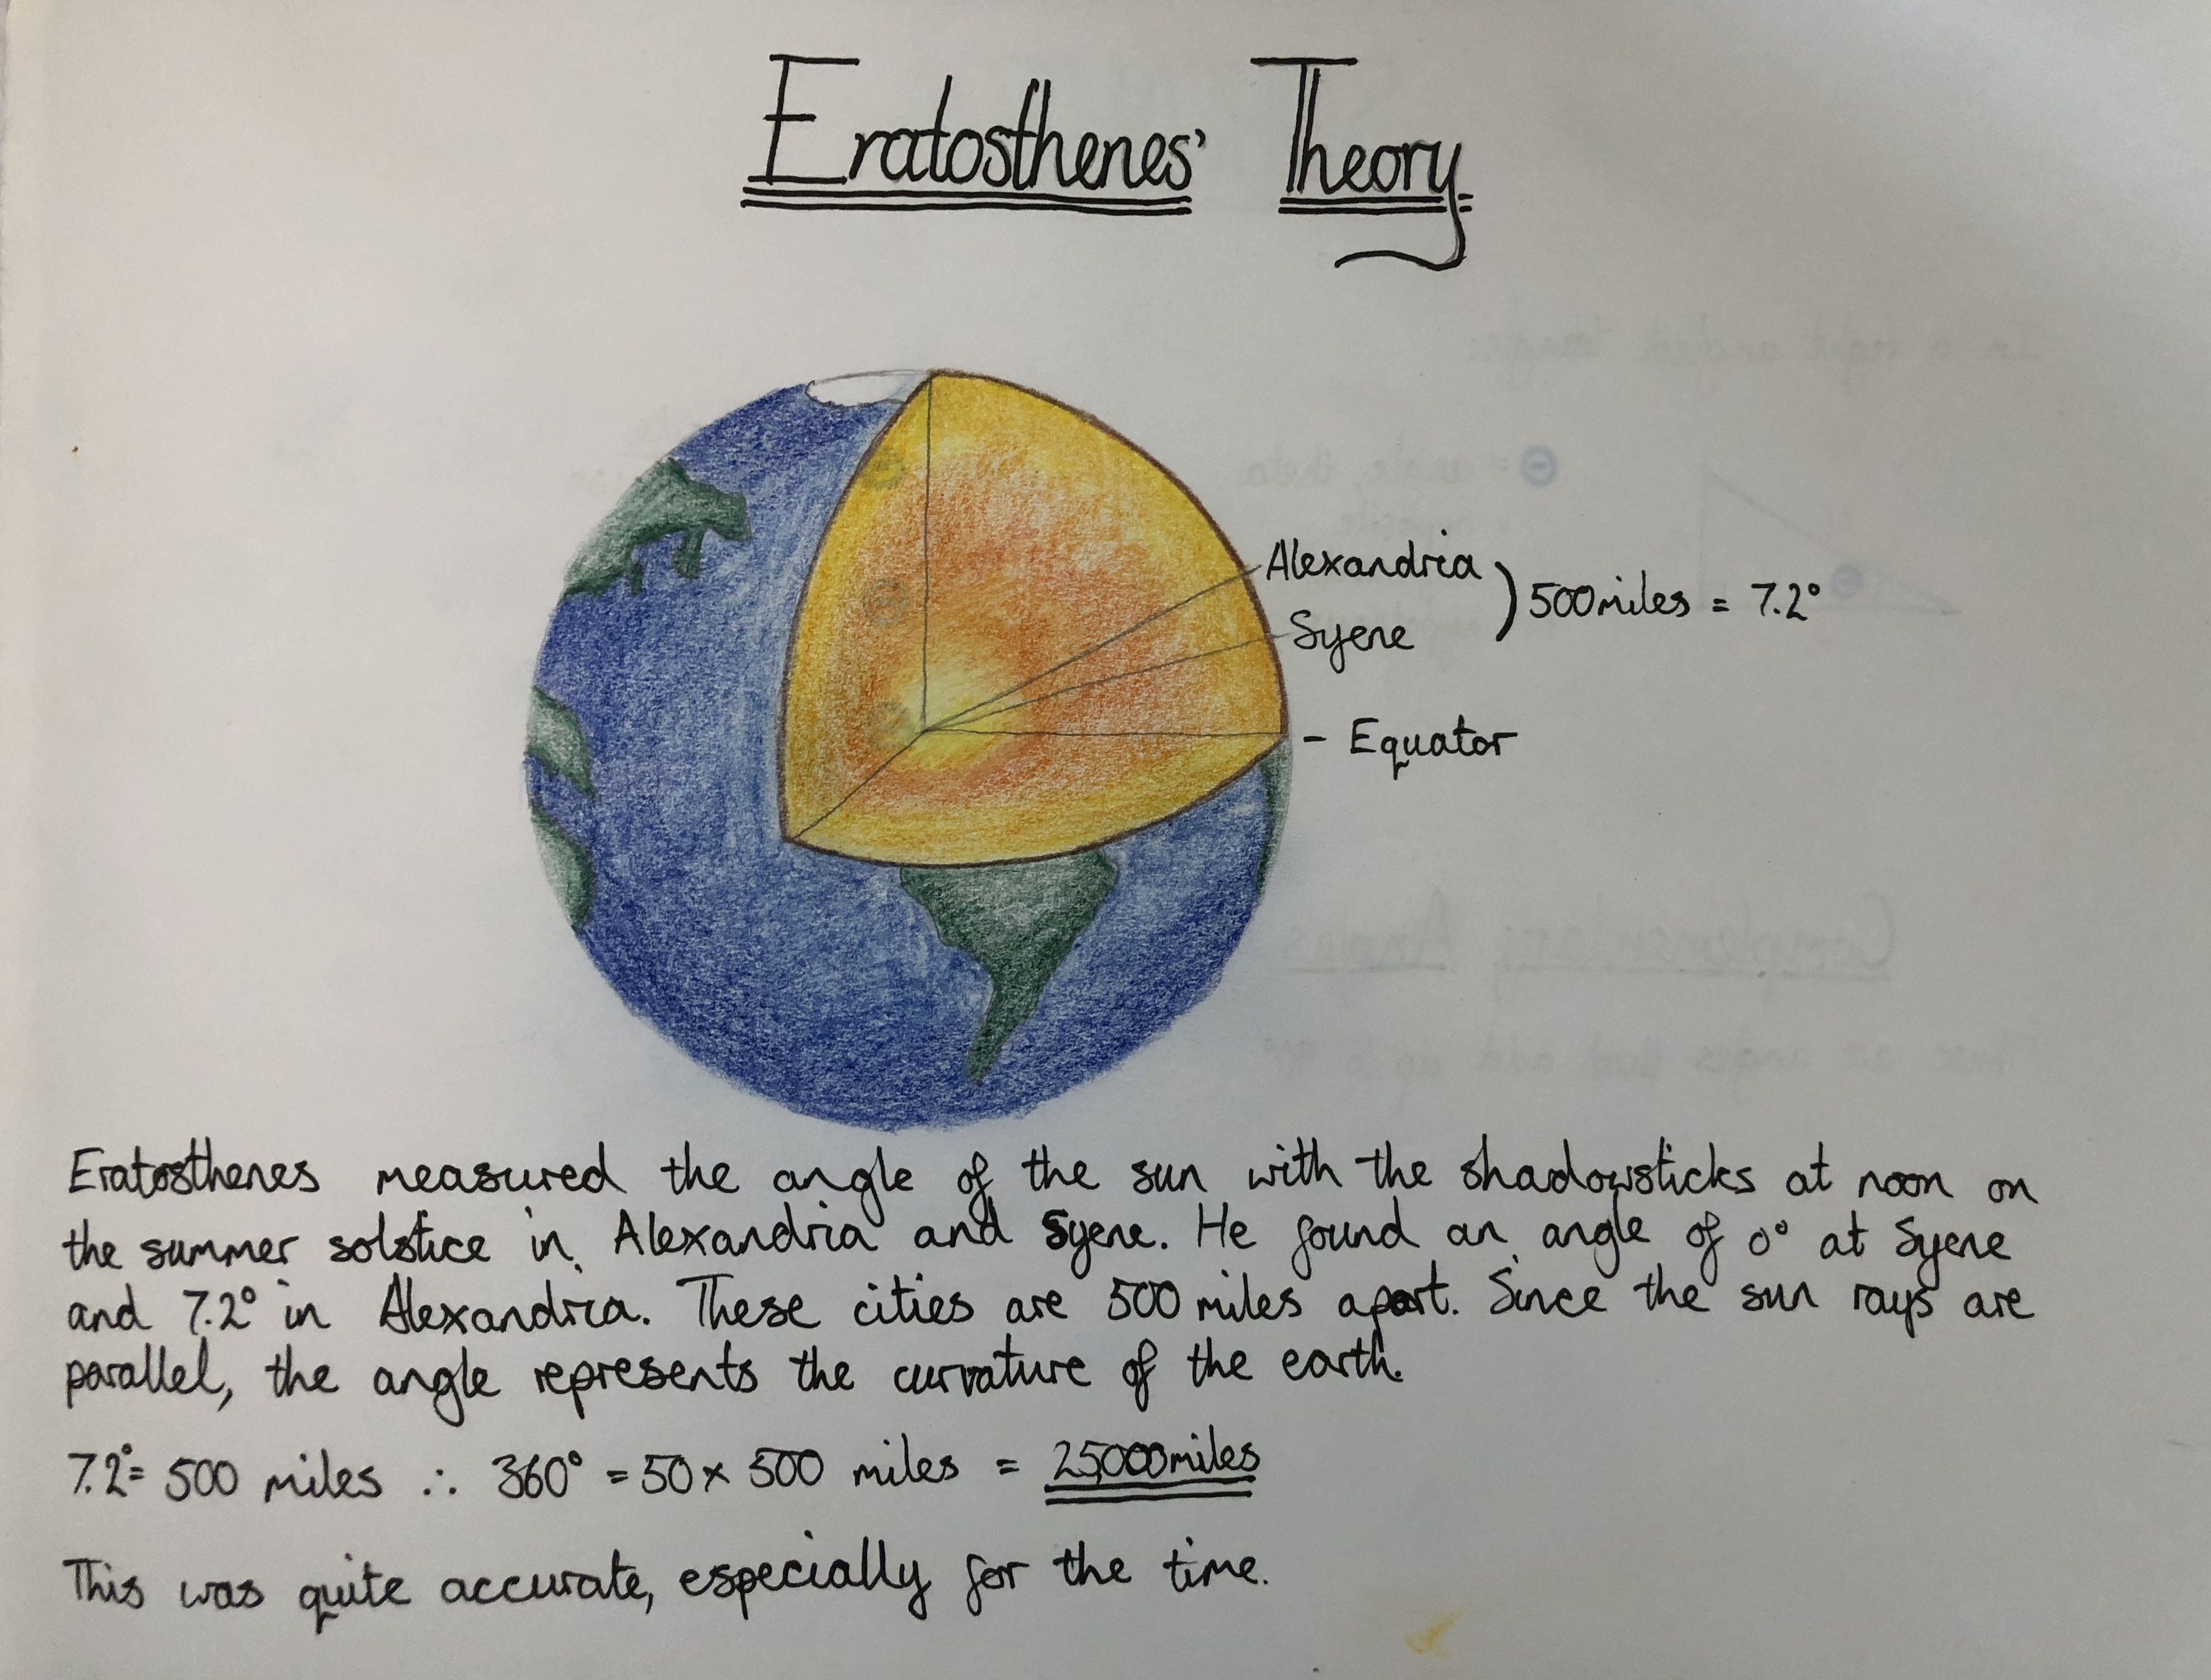 Eratosthenes' Theory
Alexandria
Syene
) 500miles = 7.2°
- Equator
Eratosthenes measured the angle of the sun with the shadowsticks at noon on
the summer solstice in Alexandria and Syene. He found an angle of 0° at Syene
and 7.2° in Alexandria. These cities are 500 miles apart. Since the sun rays are
parallel, the angle represents the curvature of the earth.
7.2° = 500 miles ∴ 360° = 50 × 500 miles = 25000miles
This was quite accurate, especially for the time.